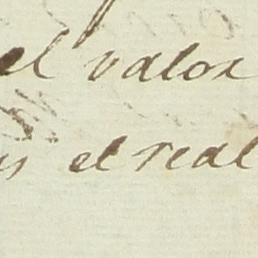 el valor
el real